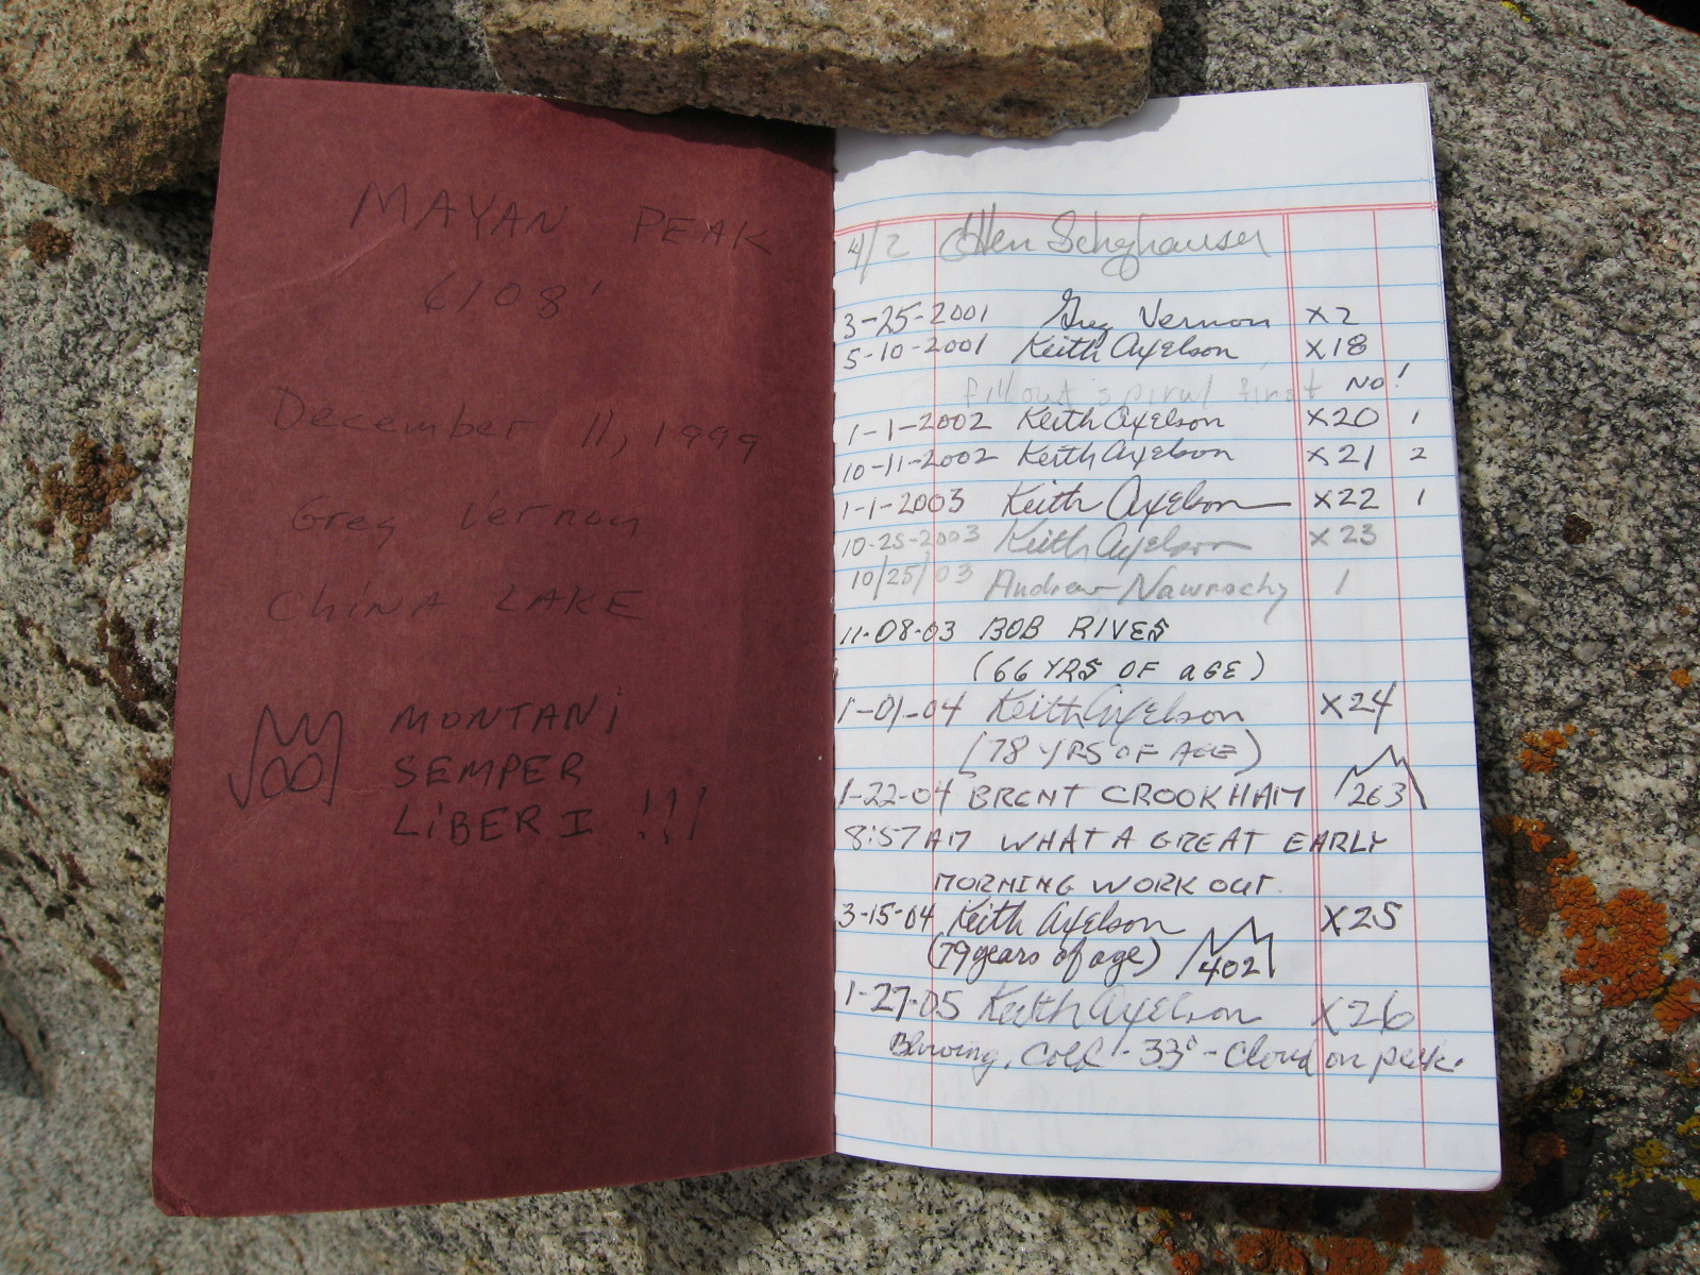 MAYAN PEAK
6108'
December 11, 1999
Greg Vernon
CHINA LAKE
MONTANI
SEMPER
LIBERI !!!
4/2
3-25-2001 Greg Vernon X2
5-10-2001 Keith Axelson X18
fill out spiral first NO!
1-1-2002 Keith Axelson X20 1
10-11-2002 Keith Axelson X21 2
1-1-2003 Keith Axelson X22 1
10-25-2003 Keith Axelson X23
10/25/03 Andrew Nawrocky 1
11-08-03 BOB RIVES
(66 YRS OF AGE)
1-01-04 Keith Axelson X24
(78 YRS OF AGE)
1-22-04 BRENT CROOKHAM 263
8:57AM WHAT A GREAT EARLY
MORNING WORK OUT.
3-15-04 Keith Axelson X25
(79 years of age) 402
1-27-05 Keith Axelson X26
Blowing, Cold - 33° - Cloud on peak.